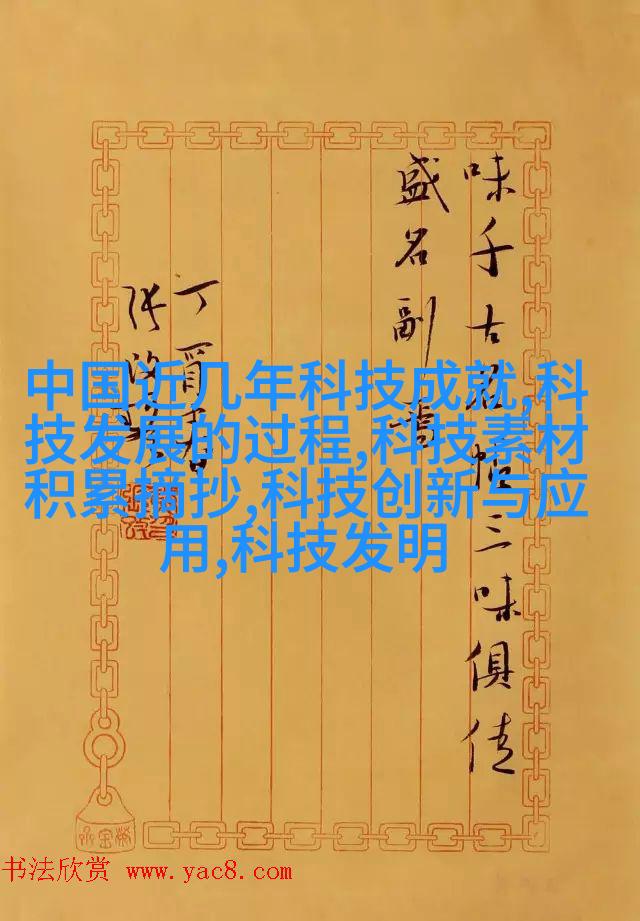 味千古名帖三味俱佳
盛名副
丁酉春
中国近几年科技成就,科
技发展的过程,科技素材
积累摘抄,科技创新与应
用,科技发明
书法欣赏 www.yac8.com